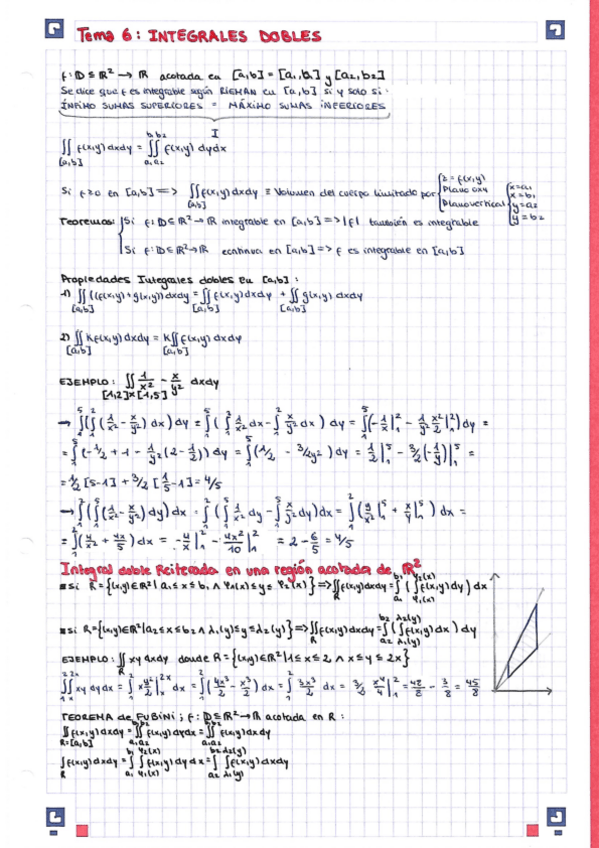 Tema 6: INTEGRALES DOBLES
f: D ⊆ ℝ² → ℝ acotada en [a,b] = [a₁,b₁] y [a₂,b₂]
Se dice que f es integrable según RIEMAN en [a,b] si y solo si:
ÍNFIMO SUMAS SUPERIORES = MÁXIMO SUMAS INFERIORES
I
∬[a,b] f(x,y) dxdy = ∫a₁^b₁ ∫a₂^b₂ f(x,y) dydx
Si f≥0 en [a,b] => ∬[a,b] f(x,y) dxdy ≡ Volumen del cuerpo limitado por { z = f(x,y) Plano oxy Planovertical { x=a₁ x=b₁ y=a₂ y=b₂
Teoremas: { Si f: D ⊆ ℝ² → ℝ integrable en [a,b] => |f| también es integrable
Si f: D ⊆ ℝ² → ℝ continua en [a,b] => f es integrable en [a,b]
Propiedades Integrales dobles en [a,b]:
1) ∬[a,b] (f(x,y) + g(x,y)) dxdy = ∬[a,b] f(x,y) dxdy + ∬[a,b] g(x,y) dxdy
2) ∬[a,b] K f(x,y) dxdy = K ∬[a,b] f(x,y) dxdy
EJEMPLO: ∬[1,2]x[1,5] 1/x² - x/y² dxdy
→ ∫₁⁵(∫₁²(1/x² - x/y²) dx) dy = ∫₁⁵(∫₁² 1/x² dx - ∫₁² x/y² dx) dy = ∫₁⁵(-1/x |₁² - 1/y² x²/2 |₁²) dy =
= ∫₁⁵(-1/2 + 1 - 1/y² (2 - 1/2)) dy = ∫₁⁵(1/2 - 3/2y²) dy = 1/2 |₁⁵ - 3/2 (-1/y) |₁⁵ =
= 1/2 [5-1] + 3/2 [1/5 - 1] = 4/5
→ ∫₁²(∫₁⁵(1/x² - x/y²) dy) dx = ∫₁²(∫₁⁵ 1/x² dy - ∫₁⁵ x/y² dy) dx = ∫₁²(y/x² |₁⁵ + x/y |₁⁵) dx =
= ∫₁²(4/x² + 4x/5) dx = -4/x |₁² - 4x²/10 |₁² = 2 - 6/5 = 4/5
Integral doble Reiterada en una región acotada de ℝ²
▪ si R = {(x,y)∈ℝ² | a₁ ≤ x ≤ b₁ ∧ φ₁(x) ≤ y ≤ φ₂(x)} => ∬R f(x,y) dxdy = ∫a₁^b₁ (∫φ₁(x)^φ₂(x) f(x,y) dy) dx
▪ si R = {(x,y)∈ℝ² | a₂ ≤ x ≤ b₂ ∧ λ₁(y) ≤ y ≤ λ₂(y)} => ∬R f(x,y) dxdy = ∫a₂^b₂ (∫λ₁(y)^λ₂(y) f(x,y) dx) dy
EJEMPLO: ∬R xy dxdy donde R = {(x,y)∈ℝ² | 1 ≤ x ≤ 2 ∧ x ≤ y ≤ 2x}
∫₁²∫ₓ²ˣ xy dy dx = ∫₁² x y²/2 |ₓ²ˣ dx = ∫₁² (4x³/2 - x³/2) dx = ∫₁² 3x³/2 dx = 3/2 x⁴/4 |₁² = 48/8 - 3/8 = 45/8
TEOREMA de FUBINI; f: D ⊆ ℝ² → ℝ acotada en R:
∬R=[a,b] f(x,y) dxdy = ∫a₁^b₁ ∫a₂^b₂ f(x,y) dydx = ∬ f(x,y) dxdy
∫R f(x,y) dxdy = ∫a₁^b₁ ∫φ₁(x)^φ₂(x) f(x,y) dy dx = ∫a₂^b₂ ∫λ₁(y)^λ₂(y) f(x,y) dxdy